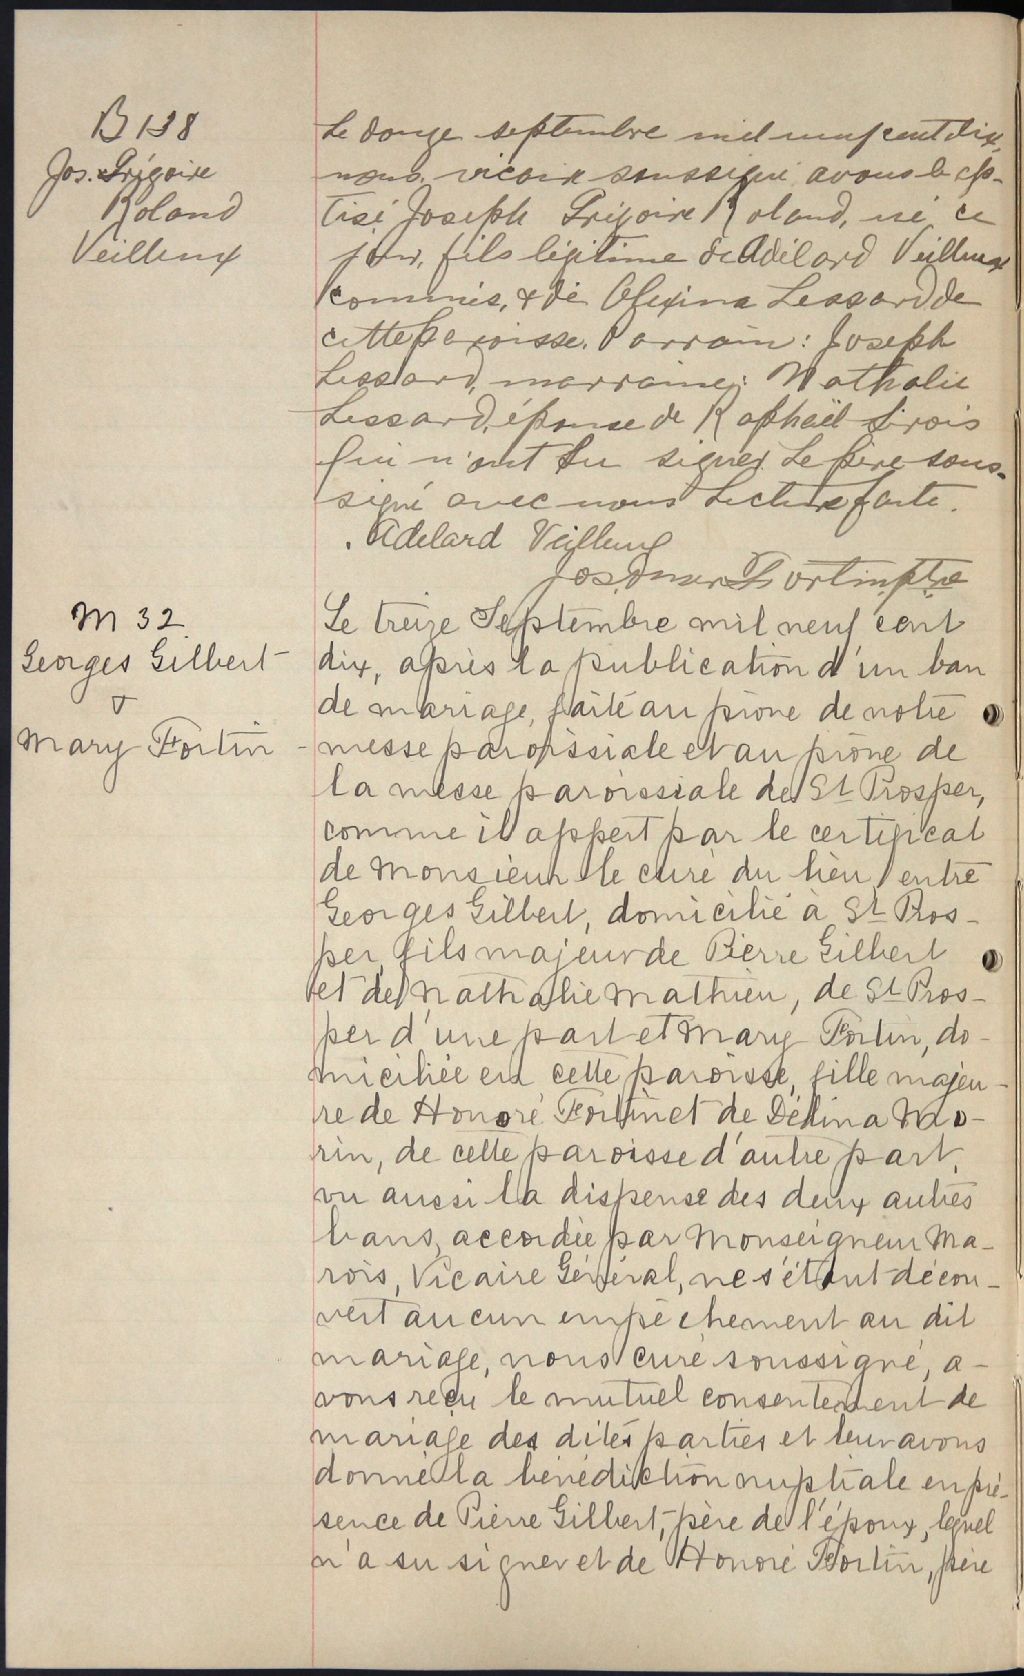 B 138
Jos. Grégoire
Roland
Veilleux
Le douze septembre mil neuf cent dix,
nous, vicaire soussigné avons bap-
tisé Joseph Grégoire Roland, né ce
jour, fils légitime de Adélard Veilleux
commis, & de Olexina Lessard de
cette paroisse. Parrain: Joseph
Lessard, marraine: Nathalie
Lessard, épouse de Raphaël Sirois
qui n'ont su signer. Le père sous-
signé avec nous Lecture faite.
Adelard Veilleux
Jos. Omer Fortin, ptre
M 32
Georges Gilbert
&
Mary Fortin
Le treize Septembre mil neuf cent
dix, après la publication d'un ban
de mariage, faite au prône de notre
messe paroissiale et au prône de
la messe paroissiale de St Prosper,
comme il appert par le certificat
de Monsieur le curé du lieu, entre
Georges Gilbert, domicilié à St Pros-
per, fils majeur de Pierre Gilbert
et de Nathalie Mathieu, de St Pros-
per d'une part et Mary Fortin, do-
miciliée en cette paroisse, fille majeu-
re de Honoré Fortin et de Délina Mo-
rin, de cette paroisse d'autre part,
vu aussi la dispense des deux autres
bans, accordée par Monseigneur Ma-
rois, Vicaire Général, ne s'étant décou-
vert aucun empêchement au dit
mariage, nous curé soussigné, a-
vons reçu le mutuel consentement de
mariage des dites parties et leur avons
donné la bénédiction nuptiale en pré-
sence de Pierre Gilbert, père de l'époux, lequel
n'a su signer et de Honoré Fortin, père